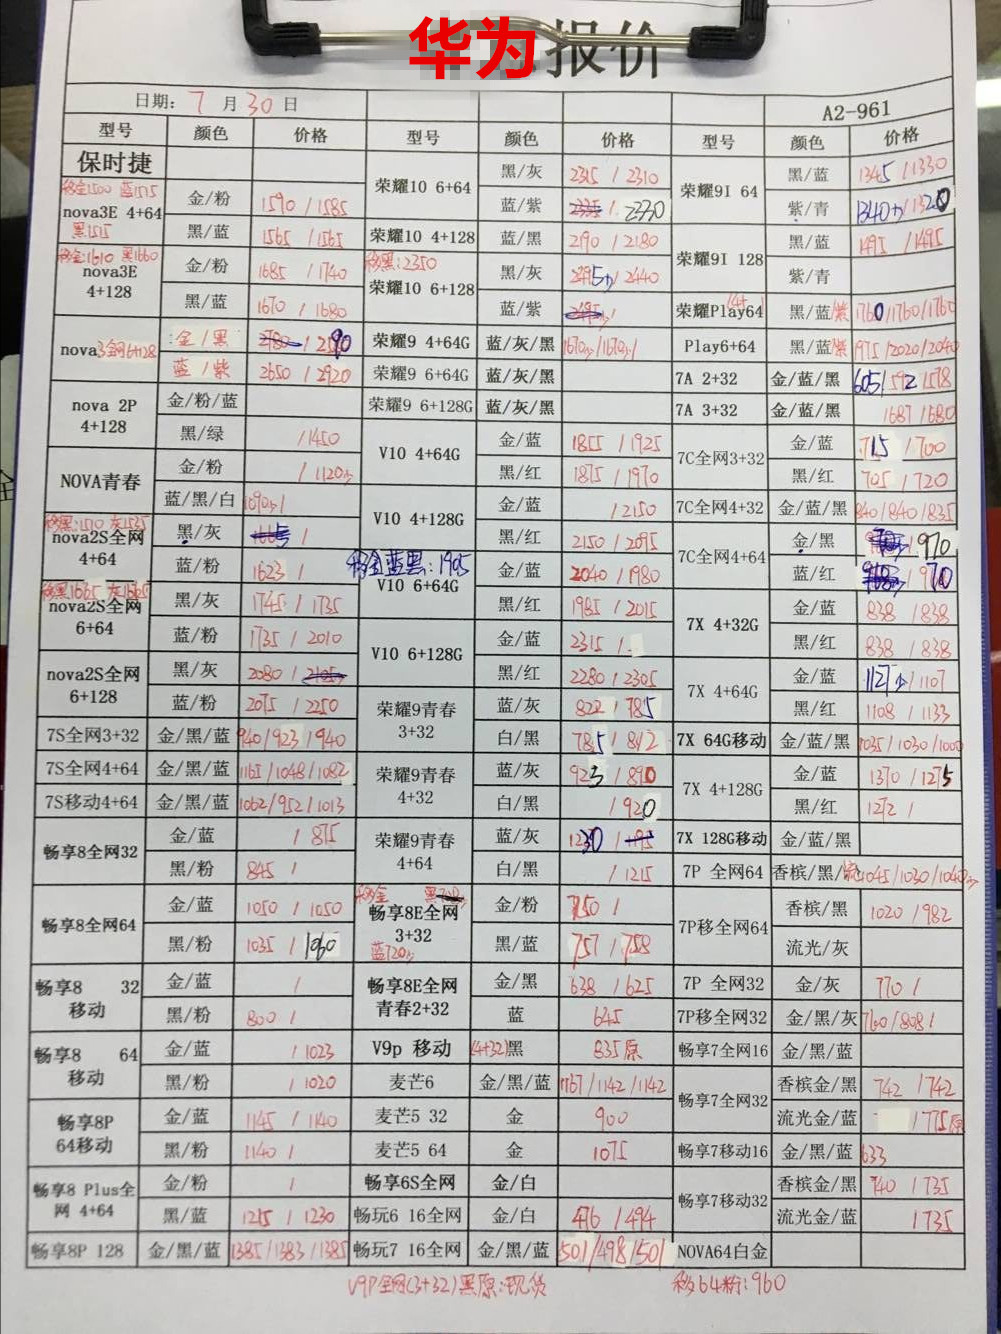 华为 报价
日期: 7 月 30 日 A2-961
型号 颜色 价格 型号 颜色 价格 型号 颜色 价格
保时捷
荣耀10 6+64 黑/灰 2315 / 2310
荣耀9I 64 黑/蓝 1345 / 1330
移金1500 蓝1515
nova3E 4+64 金/粉 1590 / 1585
蓝/紫 2330
紫/青
黑1515
黑/蓝 1565 / 1565
荣耀10 4+128 蓝/黑 2190 / 2180
荣耀9I 128 黑/蓝 1495 / 1495
移金:1610 黑1660
nova3E 4+128 金/粉 1685 / 1740
移黑:2350
荣耀10 6+128 黑/灰
紫/青
黑/蓝 1670 / 1680
蓝/紫
荣耀Play64 黑/蓝/紫 1760/1760/1760
nova3全网6+128 金/黑
荣耀9 4+64G 蓝/灰/黑
Play6+64 黑/蓝/紫 1975/2020/2040
蓝/紫 2650 / 2920
荣耀9 6+64G 蓝/灰/黑
7A 2+32 金/蓝/黑 605/592/578
nova 2P 4+128 金/粉/蓝
荣耀9 6+128G 蓝/灰/黑
7A 3+32 金/蓝/黑 /687/680
黑/绿 /1450
V10 4+64G 金/蓝 1855 / 1925
7C全网3+32 金/蓝 715 /700
NOVA青春 金/粉
黑/红 1875 / 1970
黑/红 705 / 720
蓝/黑/白
V10 4+128G 金/蓝 /2150
7C全网4+32 金/蓝/黑 840/840/835
移黑:1510 灰1535
nova2S全网 4+64 黑/灰
黑/红 2150 / 2095
7C全网4+64 金/黑 970
蓝/粉 1623 /
移金蓝黑:1905
V10 6+64G 金/蓝 2040 / 1980
蓝/红
nova2S全网 6+64 黑/灰 1745 / 1735
黑/红 1985 / 2015
7X 4+32G 金/蓝 838 / 838
蓝/粉 1735 / 2010
V10 6+128G 金/蓝 2315 /
黑/红 838 / 838
nova2S全网 6+128 黑/灰 2080 /
黑/红 2280 / 2305
7X 4+64G 金/蓝
蓝/粉 2075 / 2250
荣耀9青春 3+32 蓝/灰 822 / 785
黑/红 1108 / 1133
7S全网3+32 金/黑/蓝 940/923/940
白/黑 785 / 812
7X 64G移动 金/蓝/黑 1035/1030/1000
7S全网4+64 金/黑/蓝 1161/1048/1082
荣耀9青春 4+32 蓝/灰 923 / 890
7X 4+128G 金/蓝 1370 / 1275
7S移动4+64 金/黑/蓝 1062/952/1013
白/黑 / 920
黑/红 1272 /
畅享8全网32 金/蓝 / 875
荣耀9青春 4+64 蓝/灰 1230 /
7X 128G移动 金/蓝/黑
黑/粉 845 /
白/黑 / 1215
7P 全网64
畅享8全网64 金/蓝 1050 / 1050
移金
畅享8E全网 3+32 金/粉 750 /
7P移全网64 香槟/黑 1020 / 982
黑/粉 1035 / 1060
蓝720
黑/蓝 757 / 758
流光/灰
畅享8 32 移动 金/蓝 /
畅享8E全网 青春2+32 金/黑 638 / 625
7P 全网32 金/灰 770 /
黑/粉 800 /
蓝 645
7P移全网32 金/黑/灰 760/808/
畅享8 64 移动 金/蓝 / 1023
V9p 移动 (4+32)黑 835原
畅享7全网16 金/黑/蓝
黑/粉 / 1020
麦芒6 金/黑/蓝 1167/1142/1142
畅享7全网32 香槟金/黑 742 / 742
畅享8P 64移动 金/蓝 1145 / 1140
麦芒5 32 金 900
流光金/蓝 /775原
黑/粉 1140 /
麦芒5 64 金 1075
畅享7移动16 金/黑/蓝 633
畅享8 Plus全网 4+64 金/粉 /
畅享6S全网 金/白
畅享7移动32 香槟金/黑 740 / 735
黑/蓝 1215 / 1230
畅玩6 16全网 金/白 476 / 494
流光金/蓝 / 735
畅享8P 128 金/黑/蓝 1385/1383/1385
畅玩7 16全网 金/黑/蓝 501/498/501
NOVA64白金
V9P全网(3+32)黑原:现货 移64粉:960